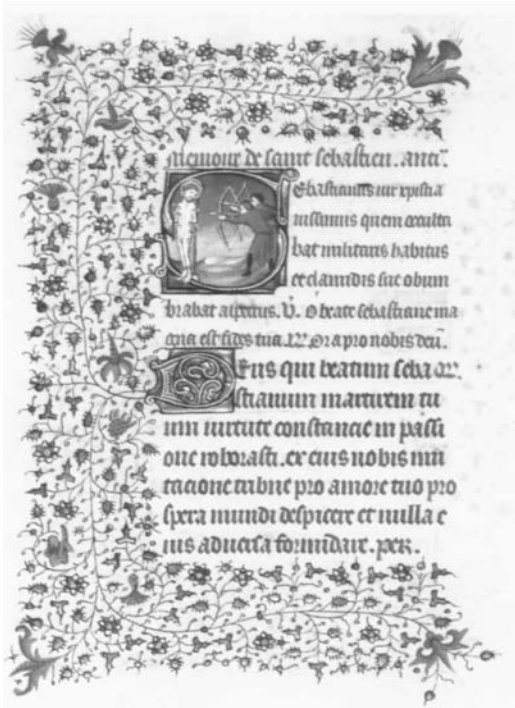 Memoire de saint sebastien. ant̄.
Sebastianus vir xpistia
nissimus quem occulta
bat militaris habitus
et clamidis sue obum
brabat aspectus. V. O beate sebastiane ma
gna est fides tua. R. Ora pro nobis deū.
Deus qui beatum seba or̄.
stianum martirem tu
um virtute constancie in passi
one roborasti. ex eius nobis imi
tacione tribue pro amore tuo pro
spera mundi despicere et nulla e
ius aduersa formidare. per.